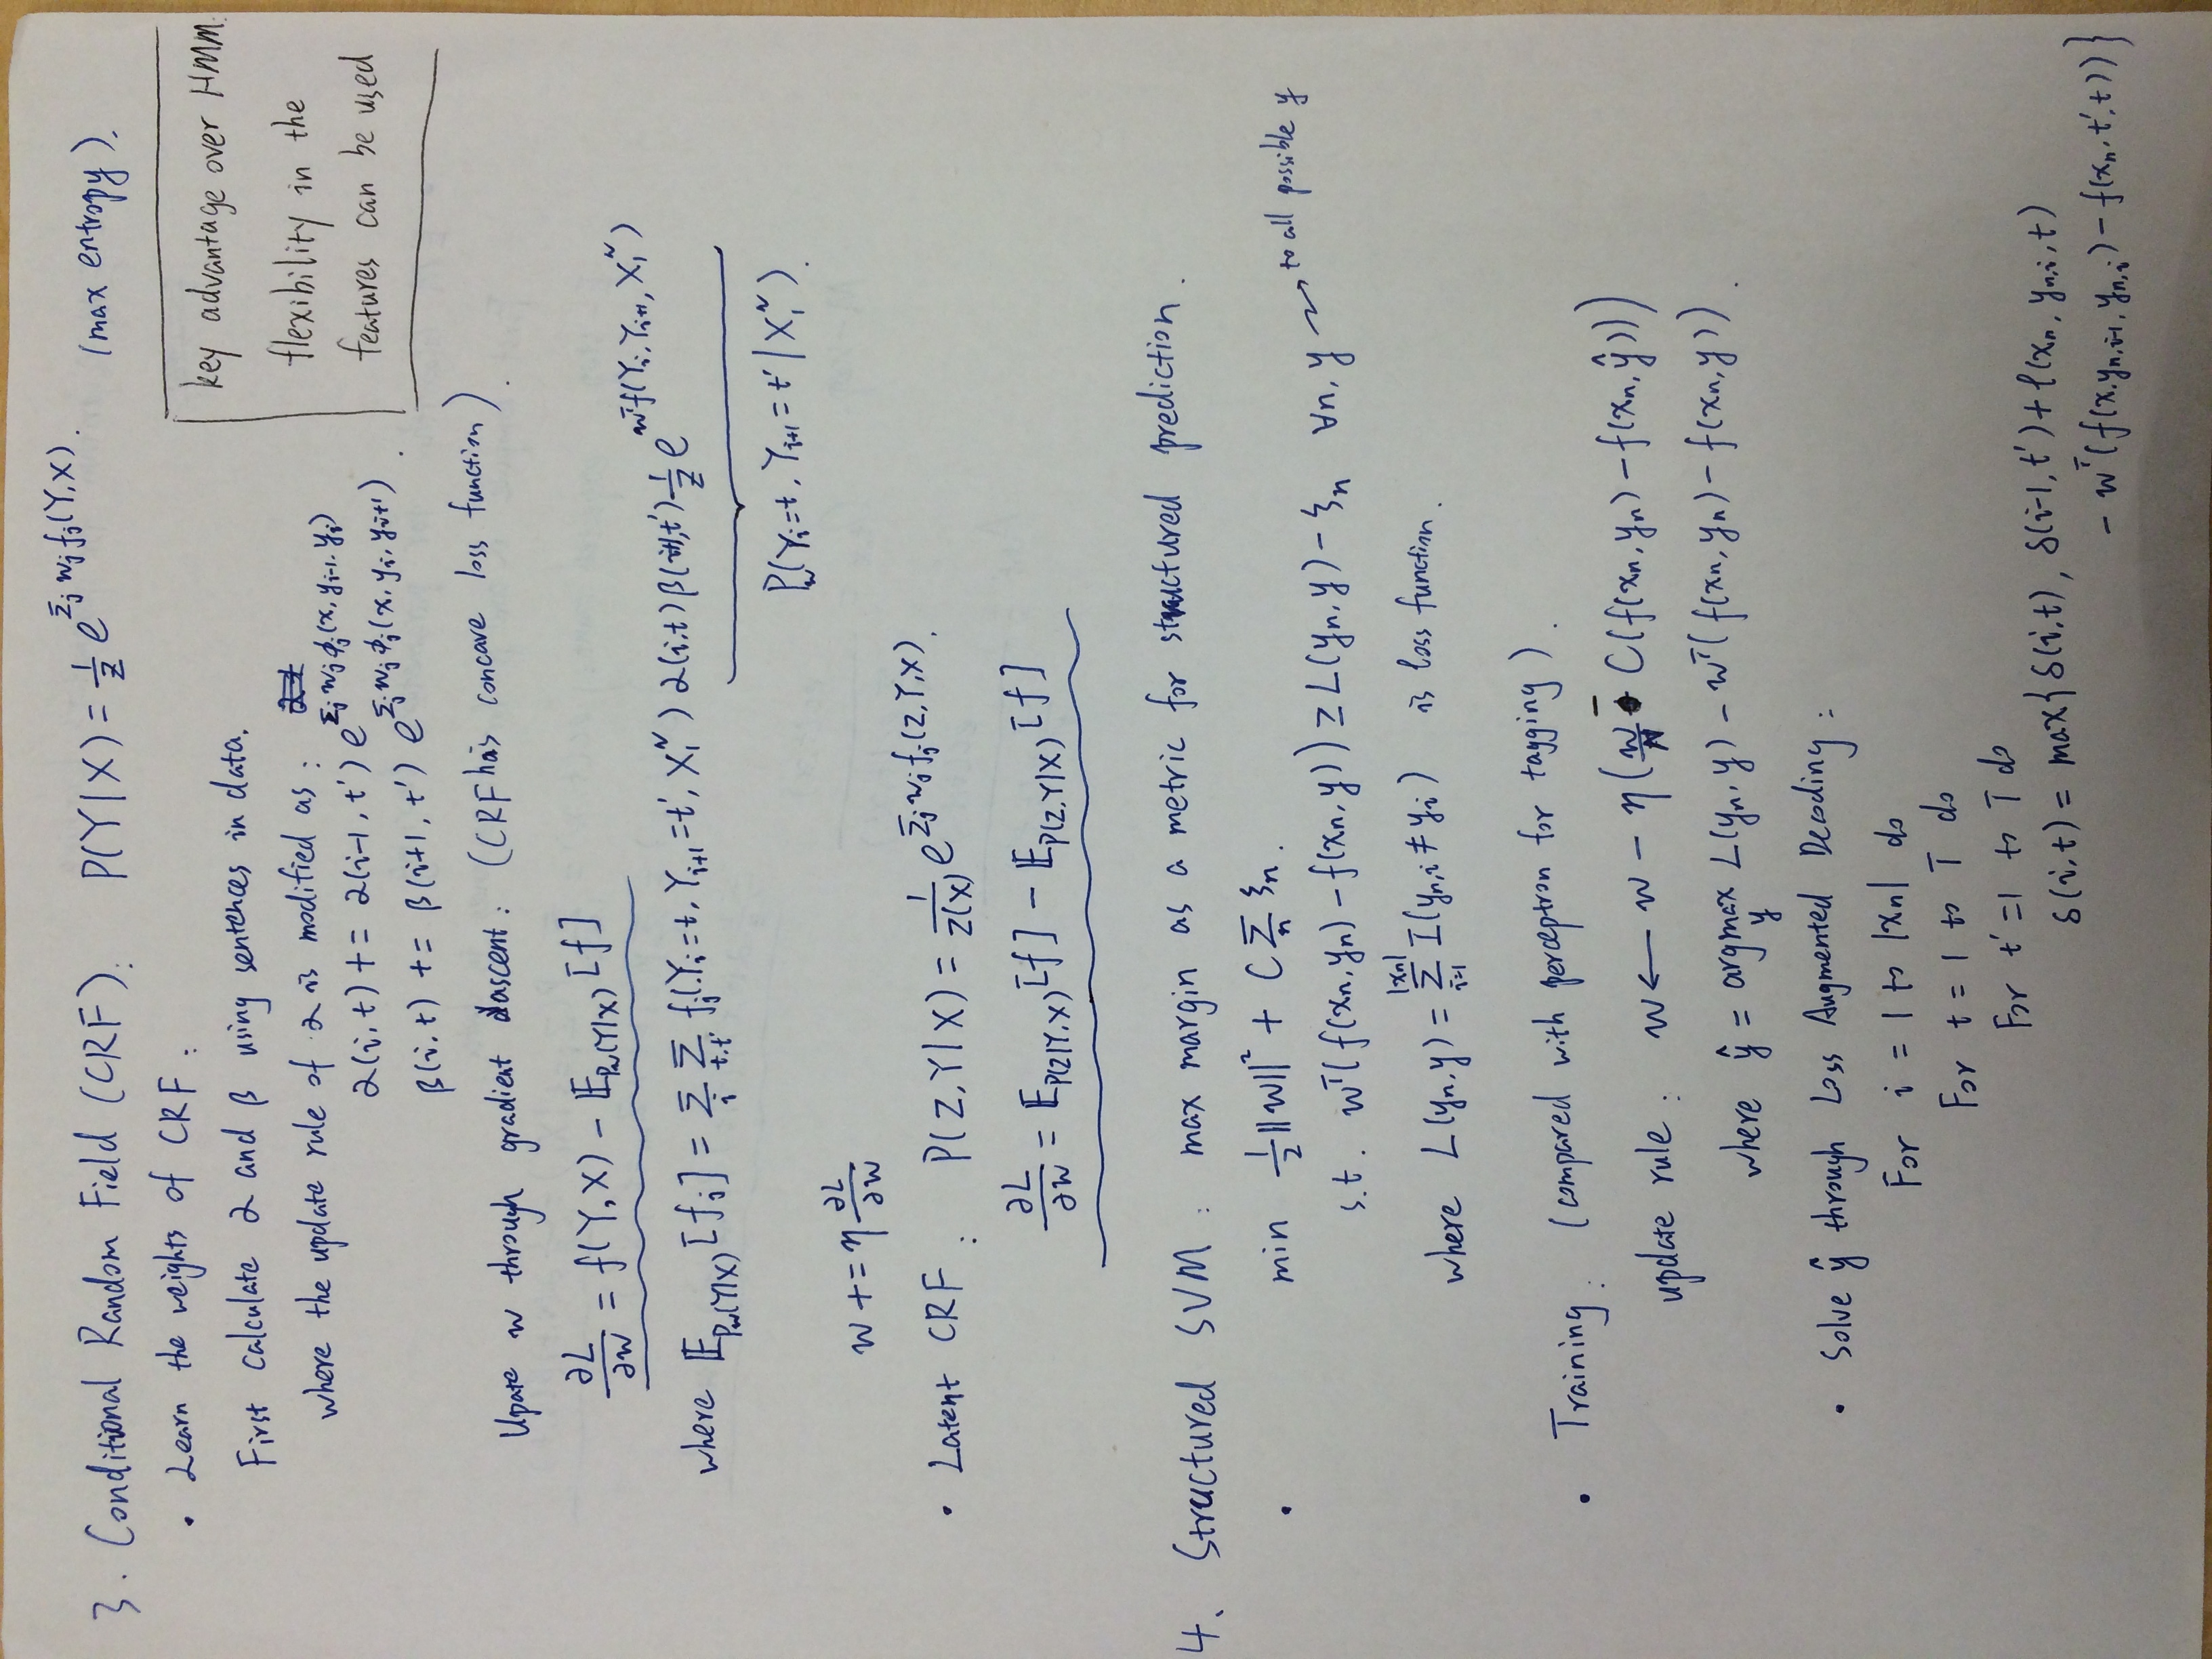 3. Conditional Random Field (CRF): P(Y|X) = 1/Z e^{Σ_j w_j f_j(Y,X)}. (max entropy).
• Learn the weights of CRF:
First calculate α and β using sentences in data.
where the update rule of α is modified as:
α(i,t) += α(i-1, t') e^{Σ_j w_j ϕ_j(x, y_{i-1}, y_i)}
β(i,t) += β(i+1, t') e^{Σ_j w_j ϕ_j(x, y_i, y_{i+1})}.
key advantage over HMM:
flexibility in the
features can be used
Upate w through gradient ascent: (CRF has concave loss function).
∂L/∂w = f(Y,X) - 𝔼_{P_w(Y|X)}[f]
where 𝔼_{P_w(Y|X)}[f_j] = Σ_i Σ_{t,t'} f_j(Y_i=t, Y_{i+1}=t', X_1^N) α(i,t) β(i+1,t') 1/Z e^{w^T f(Y_i, Y_{i+1}, X_1^N)}
P_w(Y_i=t, Y_{i+1}=t' | X_1^N).
w += η ∂L/∂w
• Latent CRF: P(Z,Y|X) = 1/Z(X) e^{Σ_j w_j f_j(Z,Y,X)}.
∂L/∂w = 𝔼_{P(Z|Y,X)}[f] - 𝔼_{P(Z,Y|X)}[f]
4. Structured SVM: max margin as a metric for structured prediction.
• min 1/2 ||w||² + C Σ_n ξ_n.
s.t. w^T(f(x_n,y_n) - f(x_n,y)) ≥ L(y_n,y) - ξ_n ∀n,y → to all possible y
where L(y_n,y) = Σ_{i=1}^{|x_n|} I(y_{n,i} ≠ y_i) is loss function.
• Training: (compared with perceptron for tagging).
update rule: w ← w - η(w/N - C(f(x_n,y_n) - f(x_n,ŷ)))
where ŷ = argmax_y L(y_n,y) - w^T(f(x_n,y_n) - f(x_n,y)).
• Solve ŷ through Loss Augmented Decoding:
For i = 1 to |x_n| do
For t = 1 to T do
For t' = 1 to T do
δ(i,t) = max{δ(i,t), δ(i-1,t') + l(x_n, y_{n,i}, t)
- w^T(f(x,y_{n,i-1}, y_{n,i}) - f(x_n,t',t))}